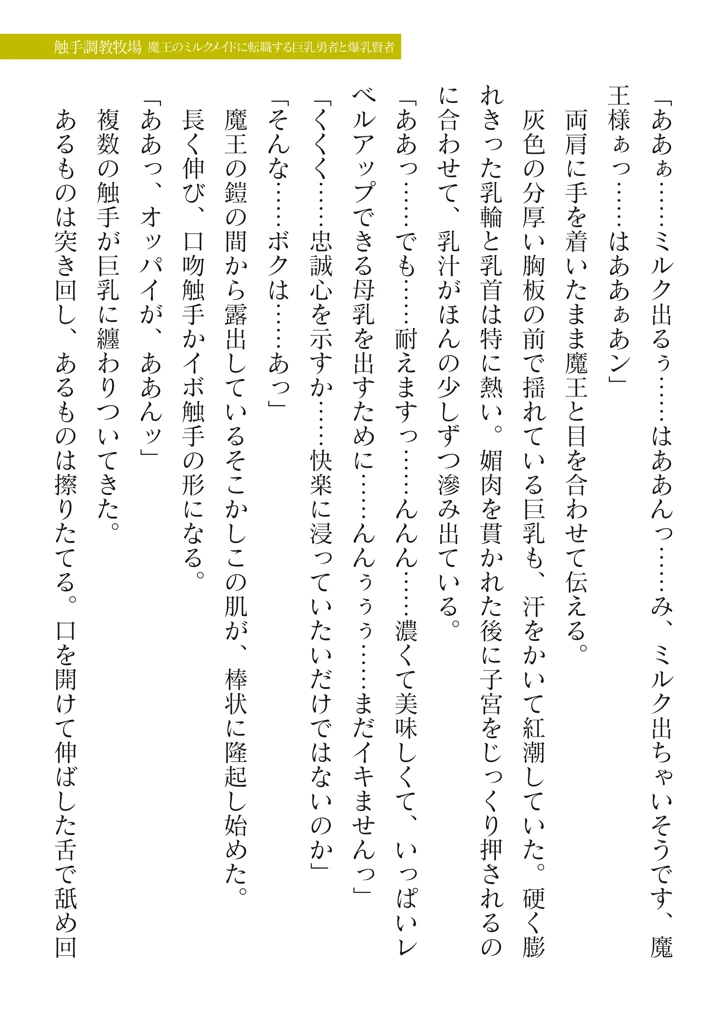 触手調教牧場 魔王のミルクメイドに転職する巨乳勇者と爆乳賢者
「ああぁ……ミルク出るぅ……はああんっ……み、ミルク出ちゃいそうです、魔
王様ぁっ……はああぁあン」
両肩に手を着いたまま魔王と目を合わせて伝える。
灰色の分厚い胸板の前で揺れている巨乳も、汗をかいて紅潮していた。硬く膨
れきった乳輪と乳首は特に熱い。媚肉を貫かれた後に子宮をじっくり押されるの
に合わせて、乳汁がほんの少しずつ滲み出ている。
「ああっ……でも……耐えますっ……んんん……濃くて美味しくて、いっぱいレ
ベルアップできる母乳を出すために……んんぅぅぅ……まだイキませんっ」
「くくく……忠誠心を示すか……快楽に浸っていたいだけではないのか」
「そんな……ボクは……あっ」
魔王の鎧の間から露出しているそこかしこの肌が、棒状に隆起し始めた。
長く伸び、口吻触手かイボ触手の形になる。
「ああっ、オッパイが、ああんッ」
複数の触手が巨乳に纏わりついてきた。
あるものは突き回し、あるものは擦りたてる。口を開けて伸ばした舌で舐め回